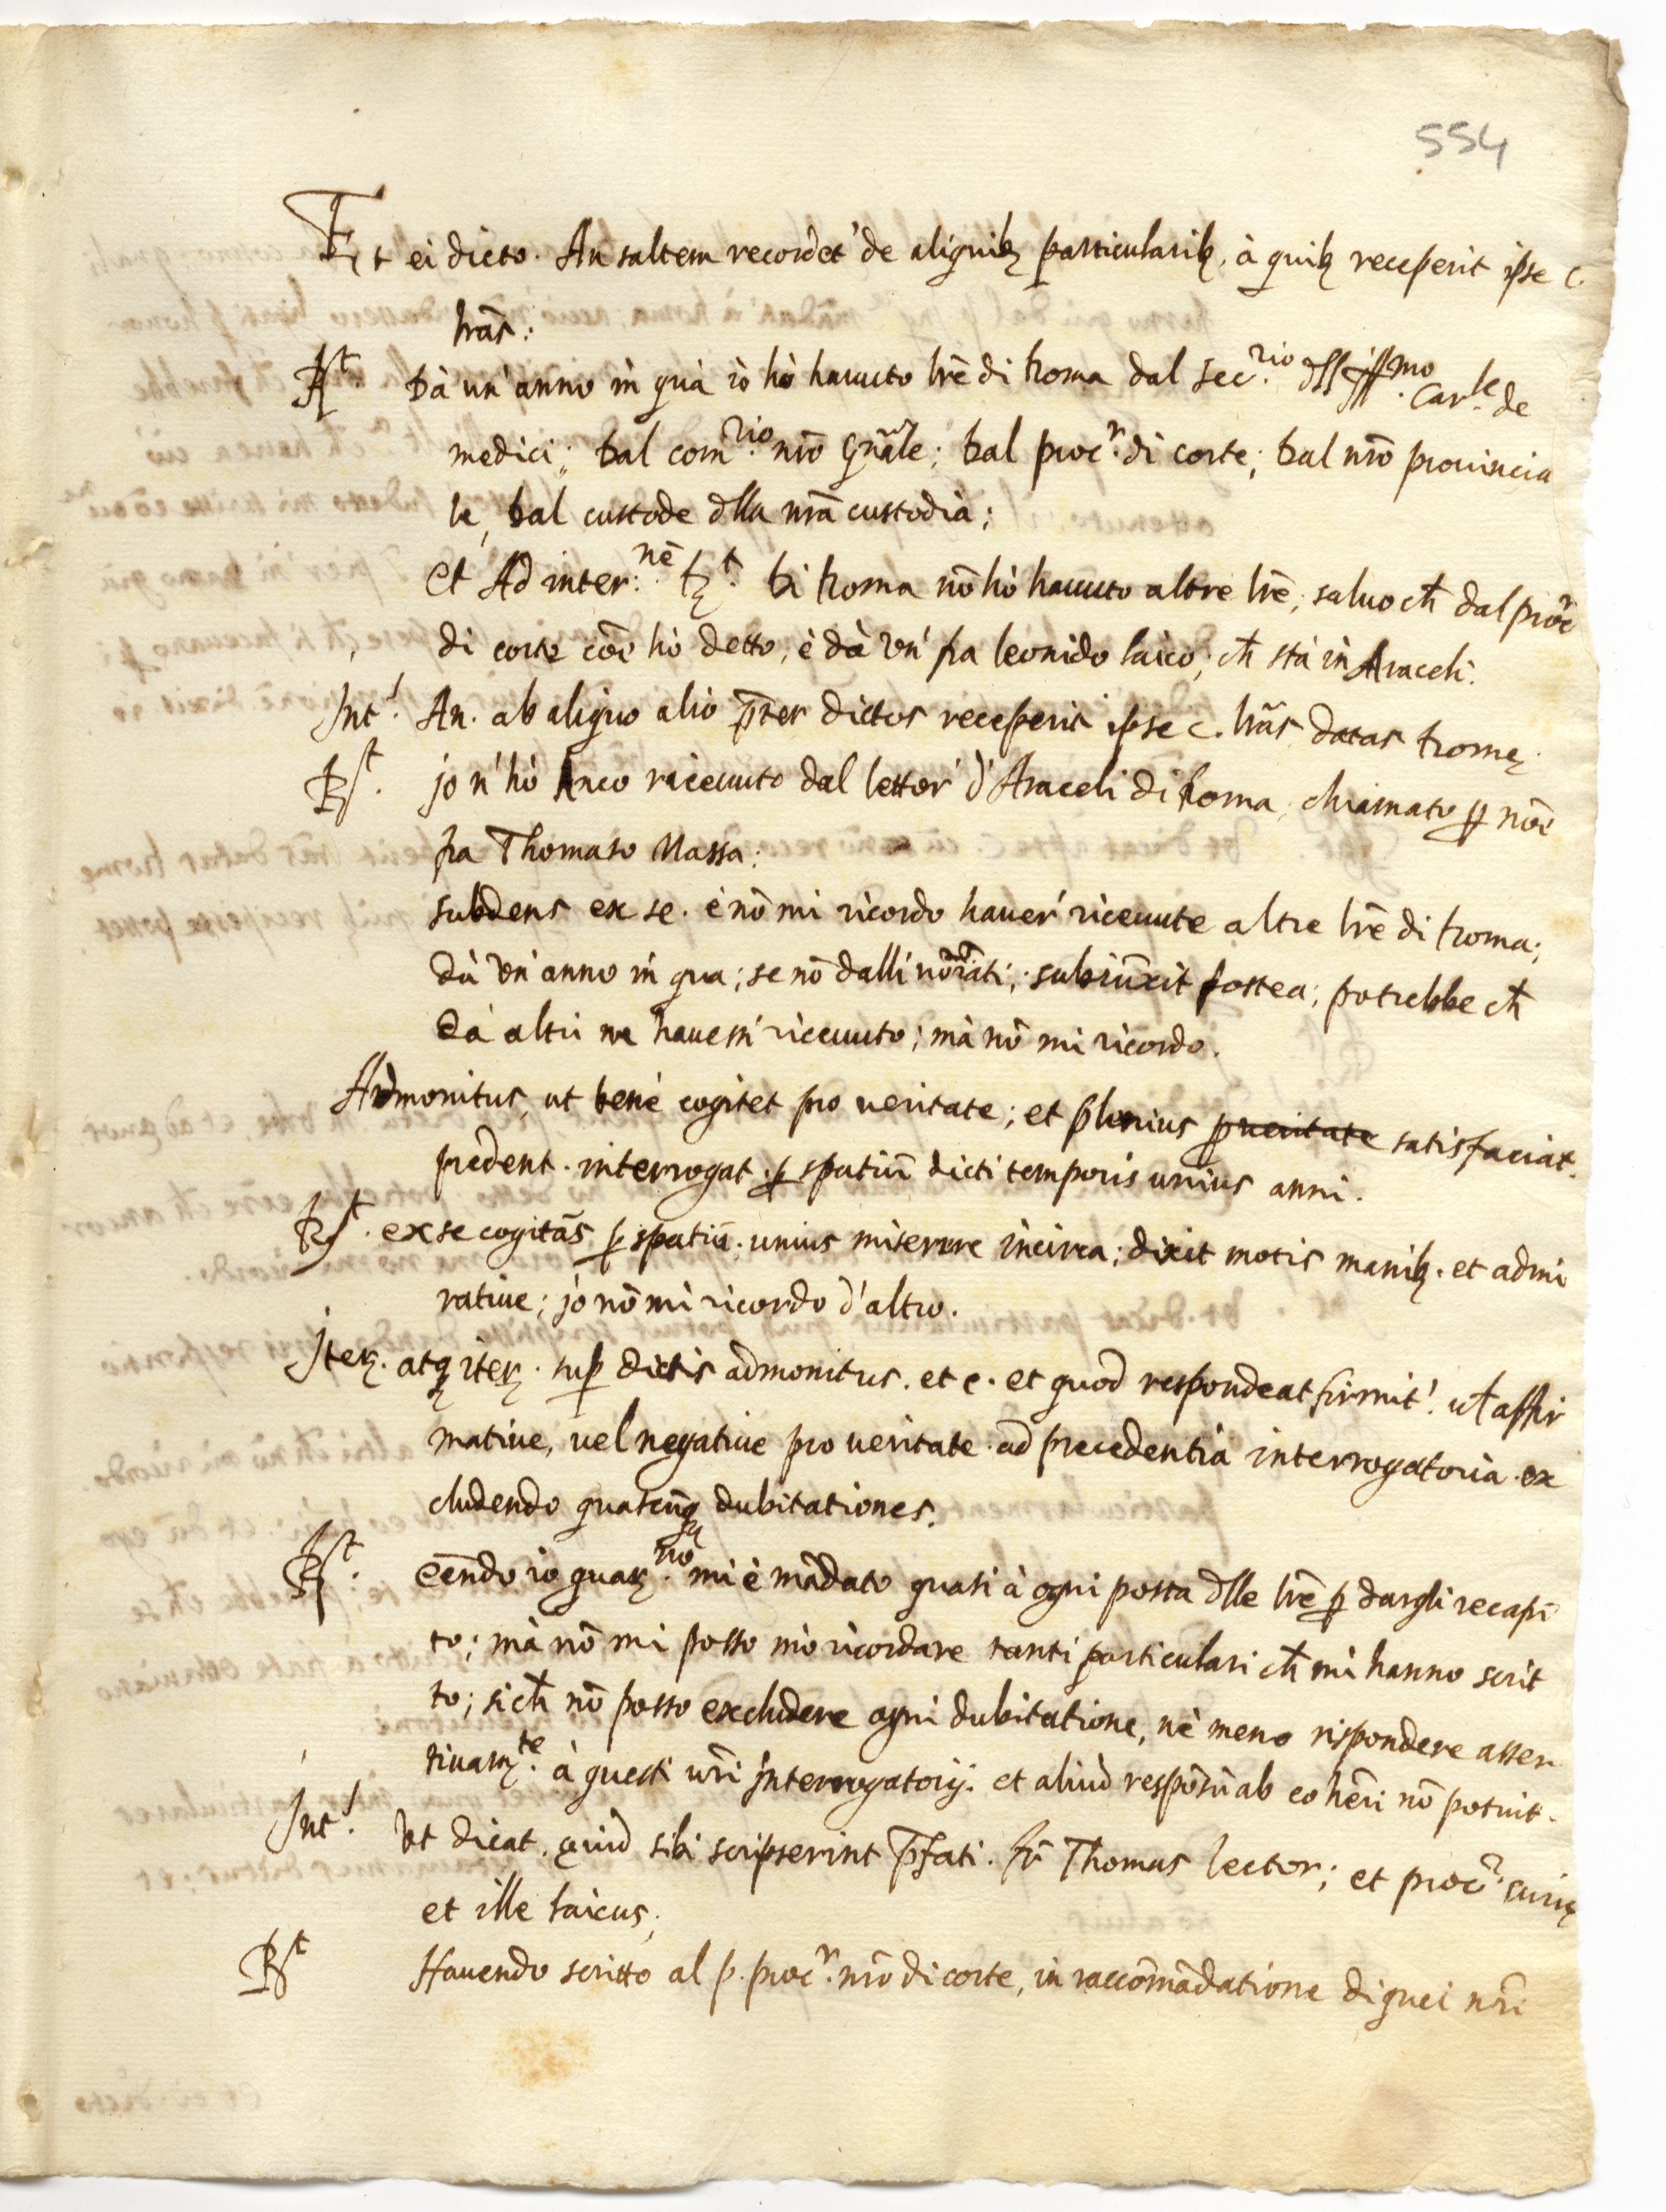 554
Et ei dicto. An saltem recordet' de aliquibꝫ particularibꝫ, à quibꝫ receperit ipse C.
lrãs:
Rt. Dà un'anno in quà iò hò hauuto lrẽ di Roma dal Sec.rio dll Illmo. Car.le de
medici; dal com.rio nr̃o Gñale; dal procr. di corte; dal nr̃o prouincia
le, dal custode dlla nr̃a custodia;
et Ad inter:nẽ Rt. Di Roma nõ hò hauuto altre lrẽ; saluo ch̃ dal procr
di corte cõe hò detto, è dà un' fra leonido laico; ch̃ stà in Araceli.
Int'. An. ab aliquo alio p̃ter dictos receperit ipse c. lrãs datas Romę.
Rt. jo n'hò Anco riceuuto dal lettor' d'Araceli di Roma, chiamato ꝑ nõe
fra Thomaso Massa:
subdens ex se. è nõ mi ricordo hauer' riceuute altre lrẽ di Roma;
dà un'anno in qua; se nõ dalli nõiãti; subiũxit postea; potrebbe ch̃
dà altri ne hauessi riceuuto; mà nõ mi ricordo.
Admonitus, ut benè cogitet pro ueritate; et plenius ꝑ ueritate satisfaciat.
preedent. interrogat. ꝑ spatiũ dicti temporis unius anni.
Rt. ex se cogitãs ꝑ spatiũ. unius miserere incirca; dixit motis manibꝫ. et admi
ratiue; jo nõ mi ricordo d'altro.
Iterꝫ. atqꝫ iterꝫ. suꝑ dictis admonitus. et c. et quod respondeat firmit'. ut̃ affir
matiue, uel negatiue pro ueritate. ad precedentia interrogatoria. ex
cludendo quascũqꝫ dubitationes.
Rt. eẽndo io guarꝫno. mi è mãdato quasi à ogni posta dlle lrẽ ꝑ dargli recapi
to; mà nõ mi posso mò ricordare tanti particulari ch̃ mi hanno scrit
to; sich̃ nõ posso excludere ogni dubitatione, nè meno rispondere asser
tiuamte. à questi ur̃i jnterrogatorij. et aliud respõsũ ab eo hẽri nõ potuit.
Int'. Ut dicat. quid sibi scripserint p̃fati. fr̃ Thomas lector; et procr. curię
et ille laicus;
Rt Hauendo scritto al p. procr. nr̃o di corte, in raccõmãdatione di quei nr̃i